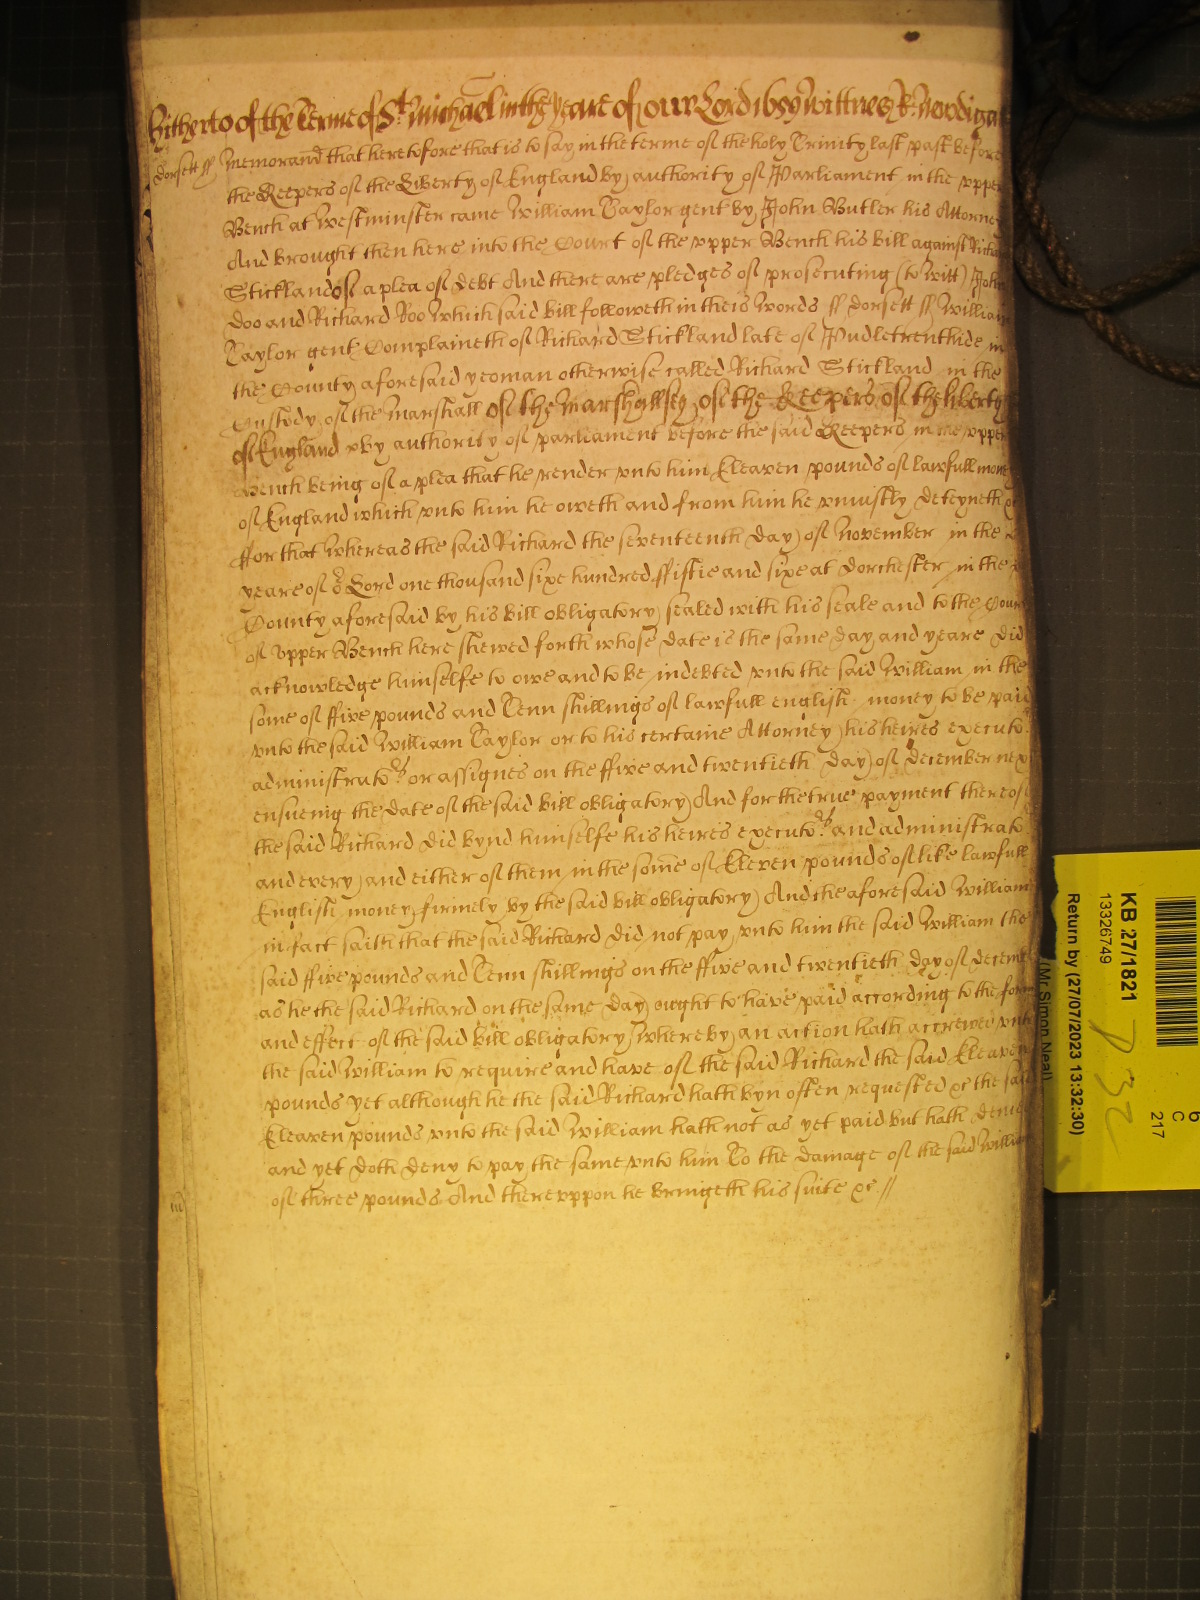 Hitherto of the Terme of St. Michael in the yeare of our Lord 1659 Wittnes R: Newdigate
Dorsett ss Memorand that heretofore that is to say in the terme of the holy Trinity last past before
the Keepers of the Liberty of England by authority of Parliament in the vpper
Bench at Westminster came William Taylor gent by John Butler his Attorney
And brought then here into the Court of the vpper Bench his bill against Richard
Stickland of a plea of debt And there are pledges of prosecuting (to witt) John
Doo and Richard Roo Which said bill followeth in theis words ss Dorsett ss William
Taylor gent Complaineth of Richard Stickland late of Pudletrenthide in
the County aforesaid yeoman otherwise called Richard Stickland in the
Custody of the Marshall of the Marshallsey of the Keepers of the liberty
of England by authority of parliament before the said Keepers in the vpper
Bench being of a plea that he render vnto him Eleaven pounds of lawfull money
of England which vnto him he oweth and from him he vniustly deteyneth
ffor that whereas the said Richard the seventeenth day of November in the
yeare of or Lord one thousand sixe hundred ffiftie and sixe at Dorchester in the
County aforesaid by his bill obligatory sealed with his seale and to the Court
of vpper Bench here shewed forth whose date is the same day and yeare did
acknowledge himselfe to owe and to be indebted vnto the said William in the
some of ffive pounds and Tenn shillings of lawfull english money to be paid
vnto the said William Taylor or to his certaine Attorney his heires executors
administrators or assignes on the ffive and twentieth day of december next
ensueing the date of the said bill obligatory And for the true payment thereof
the said Richard did bynd himselfe his heires executors and administrators
and every and either of them in the some of Eleven pounds of like lawfull
English money firmely by the said bill obligatory And the aforesaid William
in fact saith that the said Richard did not pay vnto him the said William the
said ffive pounds and Tenn shillings on the ffive and twentieth day of decemb
as he the said Richard on the same day ought to have paid according to the forme
and effect of the said bill obligatory whereby an action hath accrewed vnto
the said William to require and have of the said Richard the said Eleaven
pounds yet although he the said Richard hath byn often requested &c the said
Eleaven pounds vnto the said William hath not as yet paid but hath denied
and yet doth deny to pay the same vnto him To the damage of the said William
of three pounds And therevppon he bringeth his suite &c //
KB 27/1821
13326749
Return by (27/07/2023 13:32:30)
(Mr Simon Neal)
6
C
217
P 32